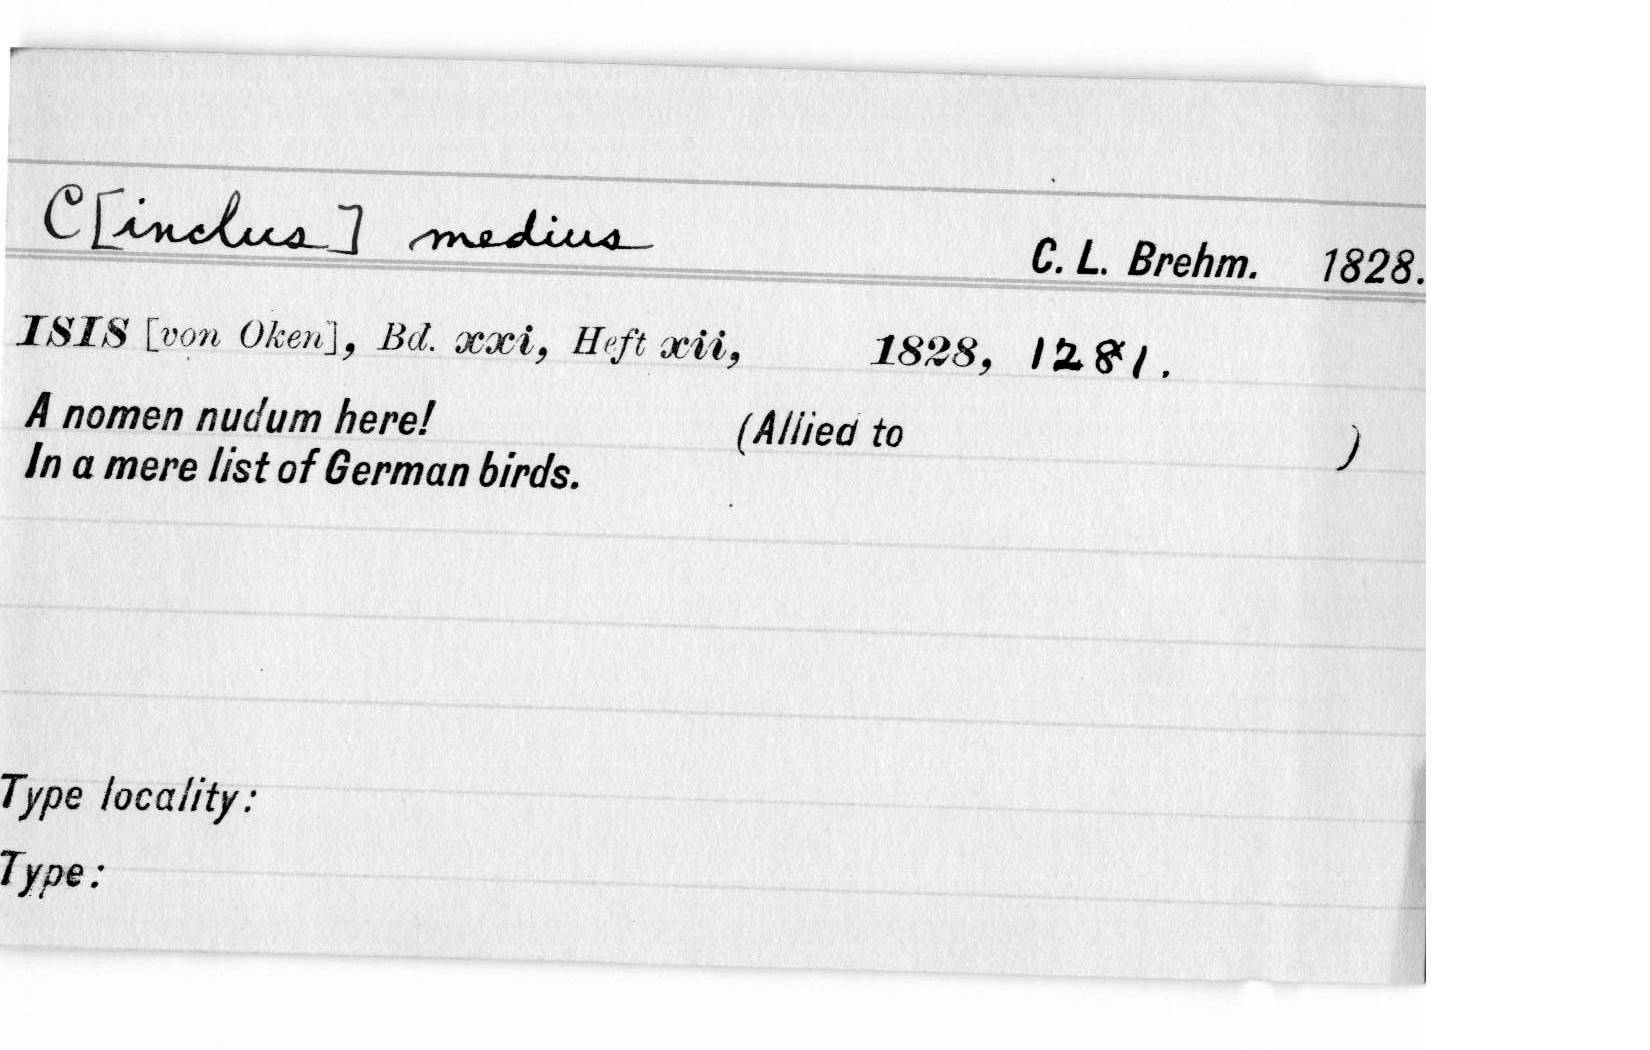 C[inclus] medius C. L. Brehm. 1828.
ISIS [von Oken], Bd. xxi, Heft xii, 1828, 1281.
A nomen nudum here! (Allied to )
In a mere list of German birds.
Type locality:
Type: